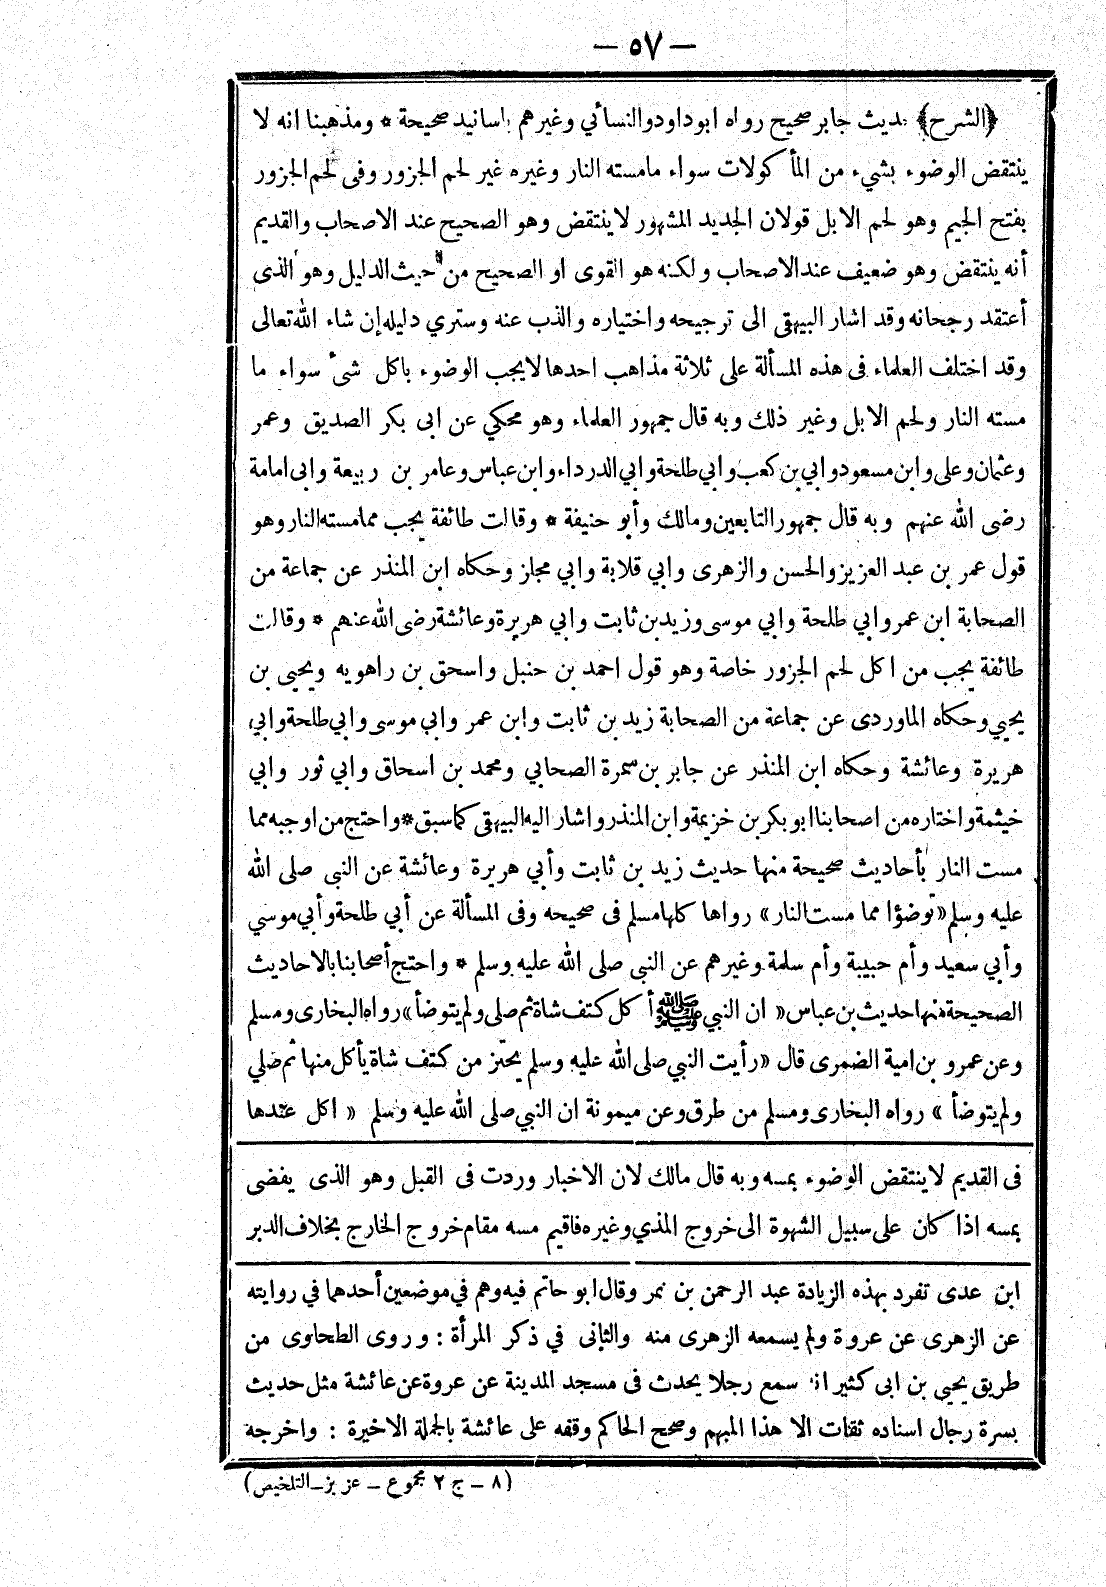 — ٥٧ —
﴿الشرح﴾ حديث جابر صحيح رواه ابوداود والنسائي وغيرهم باسانيد صحيحة * ومذهبنا انه لا
ينتقض الوضوء بشيء من المأكولات سواء مامسته النار وغيره غير لحم الجزور وفى لحم الجزور
بفتح الجيم وهو لحم الابل قولان الجديد المشهور لاينتقض وهو الصحيح عند الاصحاب والقديم
أنه ينتقض وهو ضعيف عند الاصحاب ولكنه هو القوى او الصحيح من حيث الدليل وهو الذى
أعتقد رجحانه وقد اشار البيهقى الى ترجيحه واختياره والذب عنه وسترى دليله إن شاء الله تعالى
وقد اختلف العلماء فى هذه المسألة على ثلاثة مذاهب احدها لايجب الوضوء باكل شىء سواء ما
مسته النار ولحم الابل وغير ذلك وبه قال جمهور العلماء وهو محكي عن ابى بكر الصديق وعمر
وعثمان وعلى وابن مسعود وابي بن كعب وابي طلحة وابي الدرداء وابن عباس وعامر بن ربيعة وابى امامة
رضى الله عنهم وبه قال جمهور التابعين ومالك وأبو حنيفة * وقالت طائفة يجب مما مسته النار وهو
قول عمر بن عبد العزيز والحسن والزهرى وابي قلابة وابي مجلز وحكاه ابن المنذر عن جماعة من
الصحابة ابن عمر وابي طلحة وابي موسى وزيد بن ثابت وابي هريرة وعائشة رضى الله عنهم * وقالت
طائفة يجب من اكل لحم الجزور خاصة وهو قول احمد بن حنبل واسحق بن راهويه ويحيى بن
يحيي وحكاه الماوردى عن جماعة من الصحابة زيد بن ثابت وابن عمر وابي موسى وابي طلحة وابي
هريرة وعائشة وحكاه ابن المنذر عن جابر بن سمرة الصحابي ومحمد بن اسحاق وابي ثور وابي
خيثمة واختاره من اصحابنا ابو بكر بن خزيمة وابن المنذر واشار اليه البيهقى كما سبق * واحتج من اوجبه مما
مست النار بأحاديث صحيحة منها حديث زيد بن ثابت وأبي هريرة وعائشة عن النبى صلى الله
عليه وسلم «توضؤا مما مست النار» رواها كلها مسلم فى صحيحه وفى المسألة عن أبي طلحة وأبي موسي
وأبي سعيد وأم حبيبة وأم سلمة وغيرهم عن النبى صلى الله عليه وسلم * واحتج أصحابنا بالاحاديث
الصحيحة منها حديث بن عباس « ان النبي ﷺ أكل كتف شاة ثم صلى ولم يتوضأ » رواه البخارى ومسلم
وعن عمرو بن امية الضمرى قال «رأيت النبي صلى الله عليه وسلم يحتز من كتف شاة يأكل منها ثم صلي
ولم يتوضأ » رواه البخارى ومسلم من طرق وعن ميمونة ان النبي صلى الله عليه وسلم « اكل عندها
فى القديم لاينتقض الوضوء بمسه وبه قال مالك لان الاخبار وردت فى القبل وهو الذى يفضى
بمسه اذا كان على سبيل الشهوة الى خروج المذي وغيره فاقيم مسه مقام خروج الخارج بخلاف الدبر
ابن عدى تفرد بهذه الزيادة عبد الرحمن بن نمر وقال ابو حاتم فيه وهم في موضعين أحدهما في روايته
عن الزهرى عن عروة ولم يسمعه الزهرى منه والثانى في ذكر المرأة : وروى الطحاوى من
طريق يحيي بن ابى كثير انه سمع رجلا يحدث فى مسجد المدينة عن عروة عن عائشة مثل حديث
بسرة رجال اسناده ثقات الا هذا المبهم وصحح الحاكم وقفه على عائشة بالجملة الاخيرة : واخرجه
(٨ – ج ٢ مجموع – عزيز – التلخيص)